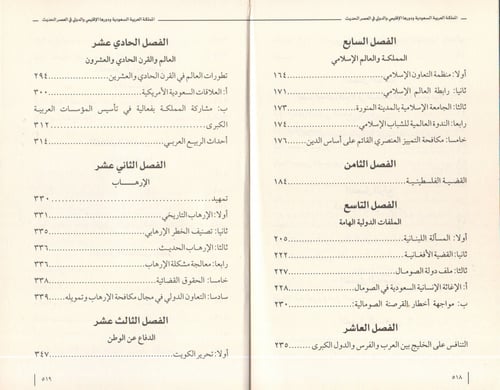 المملكة العربية السعودية ودورها الإقليمي والدولي في العصر الحديث
الفصل السابع
المملكة والعالم الإسلامي
أولا: منظمة التعاون الإسلامي ١٦٤
ثانيا: رابطة العالم الإسلامي ١٧١
ثالثا: الجامعة الإسلامية بالمدينة المنورة ١٧٣
رابعا: الندوة العالمية للشباب الإسلامي ١٧٤
خامسا: مكافحة التمييز العنصري القائم على أساس الدين ١٧٦
الفصل الثامن
القضية الفلسطينية ١٨٤
الفصل التاسع
الملفات الدولية الهامة
أولا: المسألة اللبنانية ٢٠٥
ثانيا: القضية الأفغانية ٢٢٢
ثالثا: ملف دولة الصومال ٢٢٧
أ: الإغاثة الإنسانية السعودية في الصومال ٢٢٨
ب: مواجهة أخطار القرصنة الصومالية: ٢٣٠
الفصل العاشر
التنافس على الخليج بين العرب والفرس والدول الكبرى ٢٣٥
٥١٨
المملكة العربية السعودية ودورها الإقليمي والدولي في العصر الحديث
الفصل الحادي عشر
العالم والقرن الحادي والعشرون
تطورات العالم في القرن الحادي والعشرين ٢٩٤
أ: العلاقات السعودية الأمريكية ٣٠٠
ب: مشاركة المملكة بفعالية في تأسيس المؤسسات العربية
الكبرى ٣١٢
أحداث الربيع العربي ٣١٤
الفصل الثاني عشر
الإرهاب
تمهيد ٣٣٠
أولا: الإرهاب التاريخي ٣٣١
ثانيا: تصنيف الخطر الإرهابي ٣٣٥
ثالثا: الإرهاب الحديث ٣٣٦
رابعا: معالجة مشكلة الإرهاب ٣٣٦
خامسا: الحقوق القضائية ٣٣٨
سادسا: التعاون الدولي في مجال مكافحة الإرهاب وتمويله ٣٣٩
الفصل الثالث عشر
الدفاع عن الوطن
أولا: تحرير الكويت ٣٤٧
٥١٩